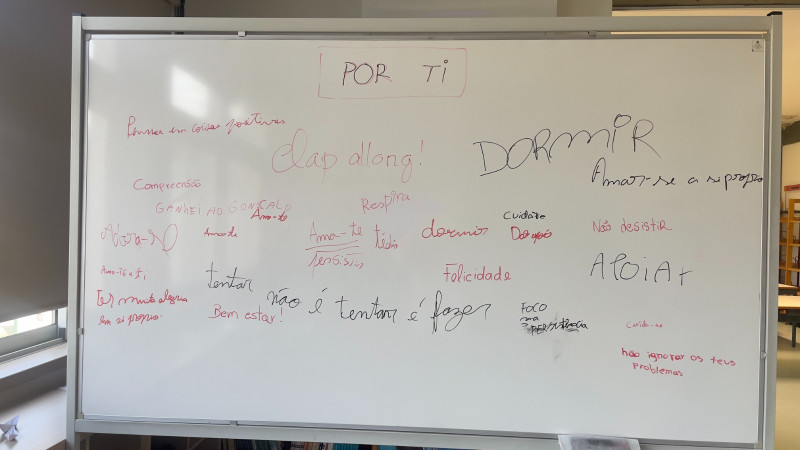 POR TI
Pensar em coisas positivas
Clap allong!
DORMIR
Amar-se a si proprio
Compreensão
GANHEI AO GONÇALO
Respira
Ama-te
Adora-
Ama-te
Ama-te
dormir
Cuidar
Não desistir
Felicidade
APOIAr
Ter muita alegria
em si proprio.
Bem estar!
tentar não é tentar é fazer
FOCO
na
Cuida-se
não ignorar os teus
problemas